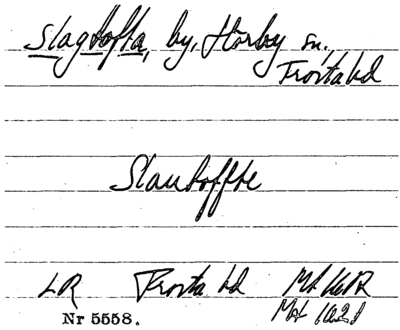 Slagtofta, by, Hörby sn,
Frosta hd
Slautoffte
LR Frosta hd
Nr 5558.